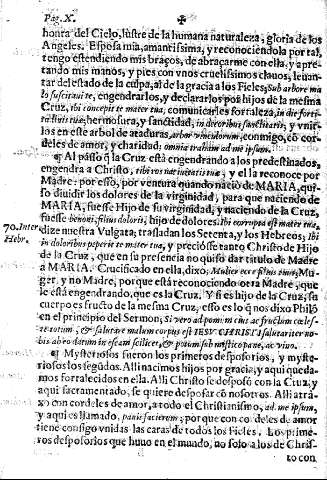 Pag. X.
honra del Cielo, lustre de la humana naturaleza, gloria de los
Angeles. Esposa mia, amantissima, y reconociendola por tal,
tengo estendiendo mis braços, de abraçarme con ella, y apre-
tando mis manos, y pies con vnos cruelissimos clauos, leuan-
tar del estado de la culpa, al de la gracia a los Fieles, Sub arbore ma
lo suscitaui te, engendrarlos, y declararlos por hijos de la mesma
Cruz, ibi concepit te mater tua, comunicarles fortaleza, in die forti-
tudinis tuæ, hermosura, y sanctidad, in decoribus sanctitatis, y vnir-
los en este arbol de ataduras, arbor vinculorum, conmigo, cõ cor-
deles de amor, y charidad: omnia traham ad me ipsum.
¶ Al passo q̃ la Cruz està engendrando a los predestinados,
engendra a Christo, ibi ros natiuitatis tuæ, y el la reconoce por
Madre: por esso, por ventura quando naciò de MARIA, qui-
so diuidir los dolores de la virginidad, para que naciendo de
MARIA, fuesse Hijo de su virginidad, y naciendo de la Cruz,
fuesse benoni, filius doloris, hijo de dolores. Ibi corrupta est mater tua,
70. Inter
Hebr.
dize nuestra Vulgata; trasladan los Setenta, y los Hebreos; ibi
in doloribus peperit te mater tua, y preciòse tanto Christo de Hijo
de la Cruz, que en su presencia no quiso dar titulo de Madre
a MARIA. Crucificado en ella, dixo, Mulier ecce filius tuus, Mu-
ger, y no Madre, porque està reconociendo otra Madre, que
le està engendrando, que es la Cruz. Y si es hijo de la Cruz, su
cuerpo es fructo de la mesma Cruz, esso es lo q̃ nos dixo Philõ
en el principio del Sermon;
bis abro datum in escam scilicet, & potum sub mystico pane, ac vino.
¶ Mysteriosos fueron los primeros desposorios, y myste-
riosos los segũdos. Alli nacimos hijos por gracia, y aqui queda-
mos fortalecidos en ella. Alli Christo se desposò con la Cruz, y
aqui sacramentado, se quiere desposar cõ nosotros. Alli atrà-
xo con cordeles de amor, a todo el Christianismo, ad me ipsum,
y aqui es llamado, panis facierum, porque con cordeles de amor
tiene consigo vnidas las caras de todos los Fieles. Los prime-
ros desposorios que huuo en el mundo, no solo a los de Chris-
to con